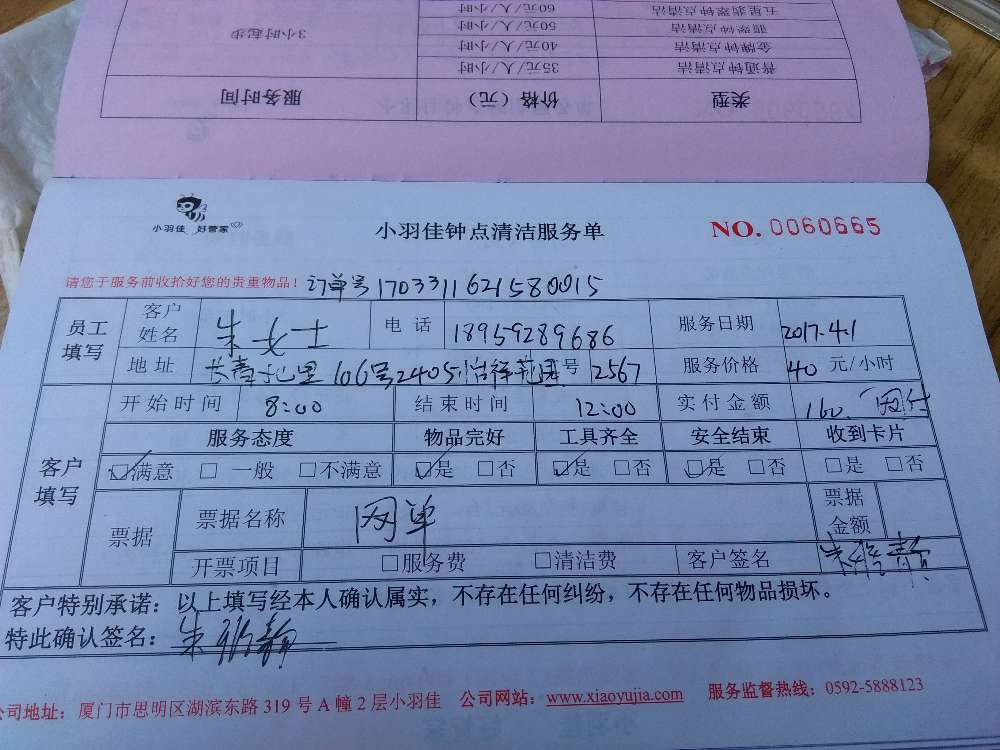 五星翡翠钟点清洁 60元/人/小时
翡翠钟点清洁 50元/人/小时
金牌钟点清洁 40元/人/小时
普通钟点清洁 35元/人/小时
3小时起步
类型 价格（元） 服务时间
小羽佳 好管家
小羽佳钟点清洁服务单
NO. 0060665
请您于服务前收拾好您的贵重物品！ 订单号 1703311621580015
员工填写 客户姓名 朱女士 电话 18959289686 服务日期 2017.4.1
地址 长青北里106号2405 号 12567 服务价格 40 元/小时
客户填写 开始时间 8:00 结束时间 12:00 实付金额 160. 网付
服务态度 物品完好 工具齐全 安全结束 收到卡片
☑满意 □ 一般 □不满意 ☑是 □否 ☑是 □否 ☑是 □否 □是 □否
票据 票据名称 网单 票据金额
开票项目 □服务费 □清洁费 客户签名
客户特别承诺：以上填写经本人确认属实，不存在任何纠纷，不存在任何物品损坏。
特此确认签名：
公司地址：厦门市思明区湖滨东路 319 号 A 幢 2 层小羽佳 公司网站：www.xiaoyujia.com 服务监督热线：0592-5888123